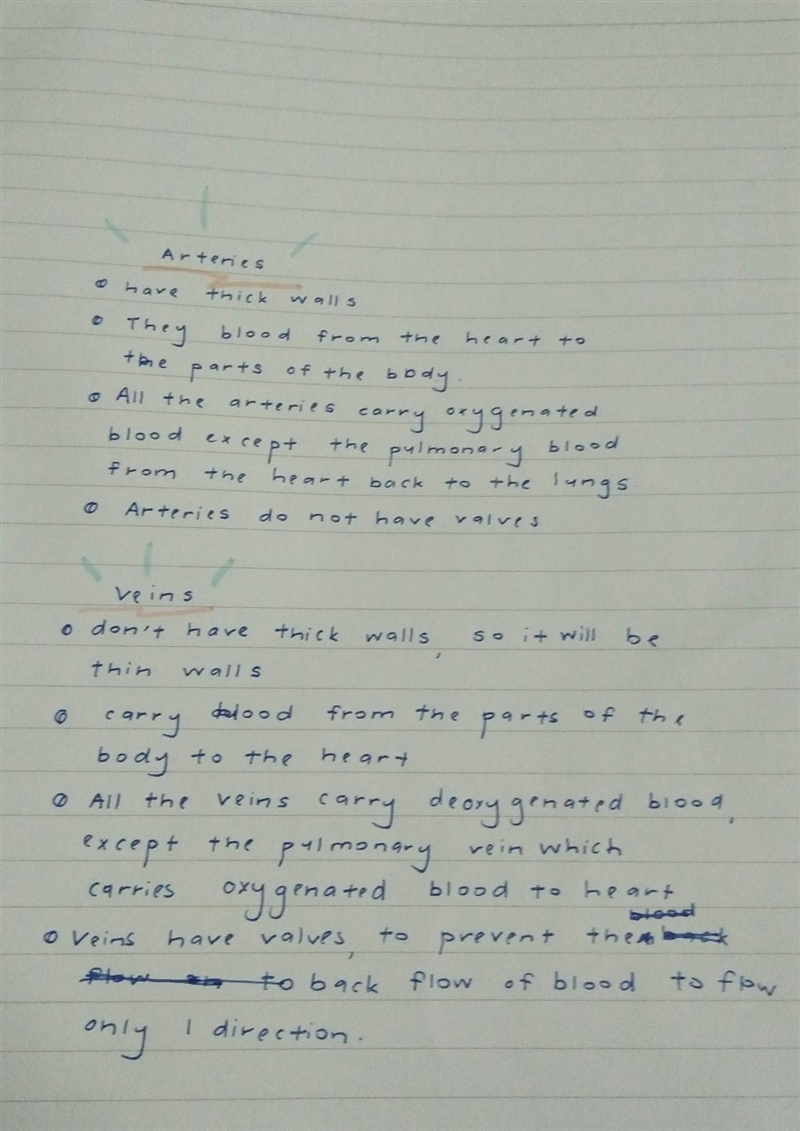 Arteries
have thick walls
They blood from the heart to
the parts of the body.
All the arteries carry oxygenated
blood except the pulmonary blood
from the heart back to the lungs
Arteries do not have valves
Veins
don't have thick walls, so it will be
thin walls
carry blood from the parts of the
body to the heart
All the veins carry deoxygenated blood,
except the pulmonary vein which
carries oxygenated blood to heart
blood
Veins have valves, to prevent the back
flow in to back flow of blood to flow
only 1 direction.